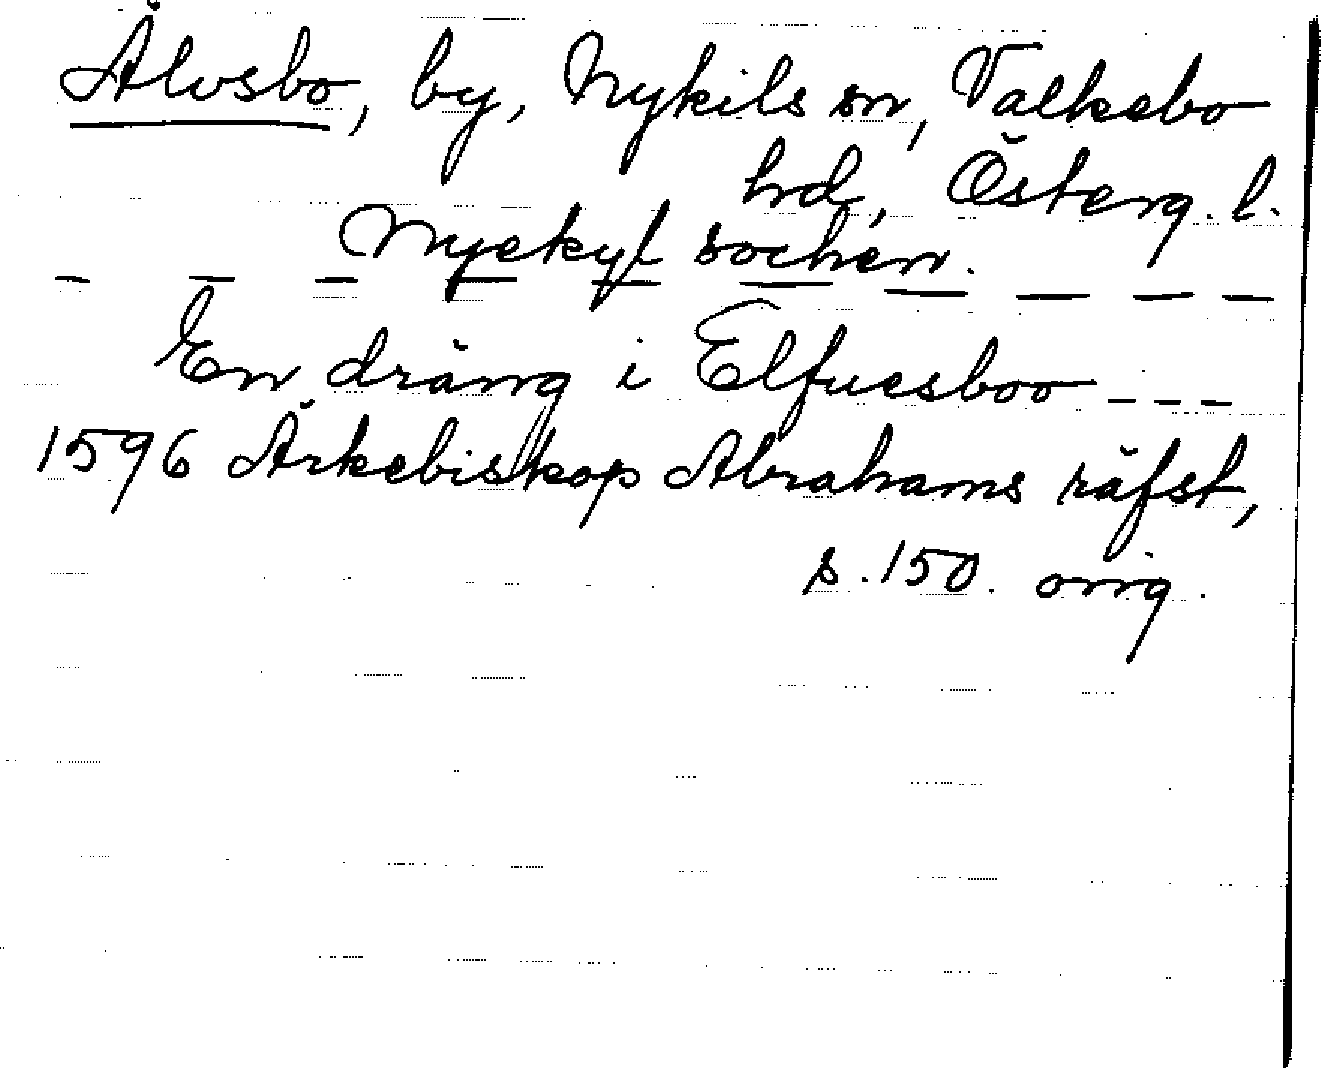 Älvsbo, by, Nykils sn, Valkebo
hd, Österg. l.
Nyekyl sochen.
– – – – – – – – – –
En dräng i Elfuesboo - - -
1596 Ärkebiskop Abrahams räfst,
s. 150. orig.